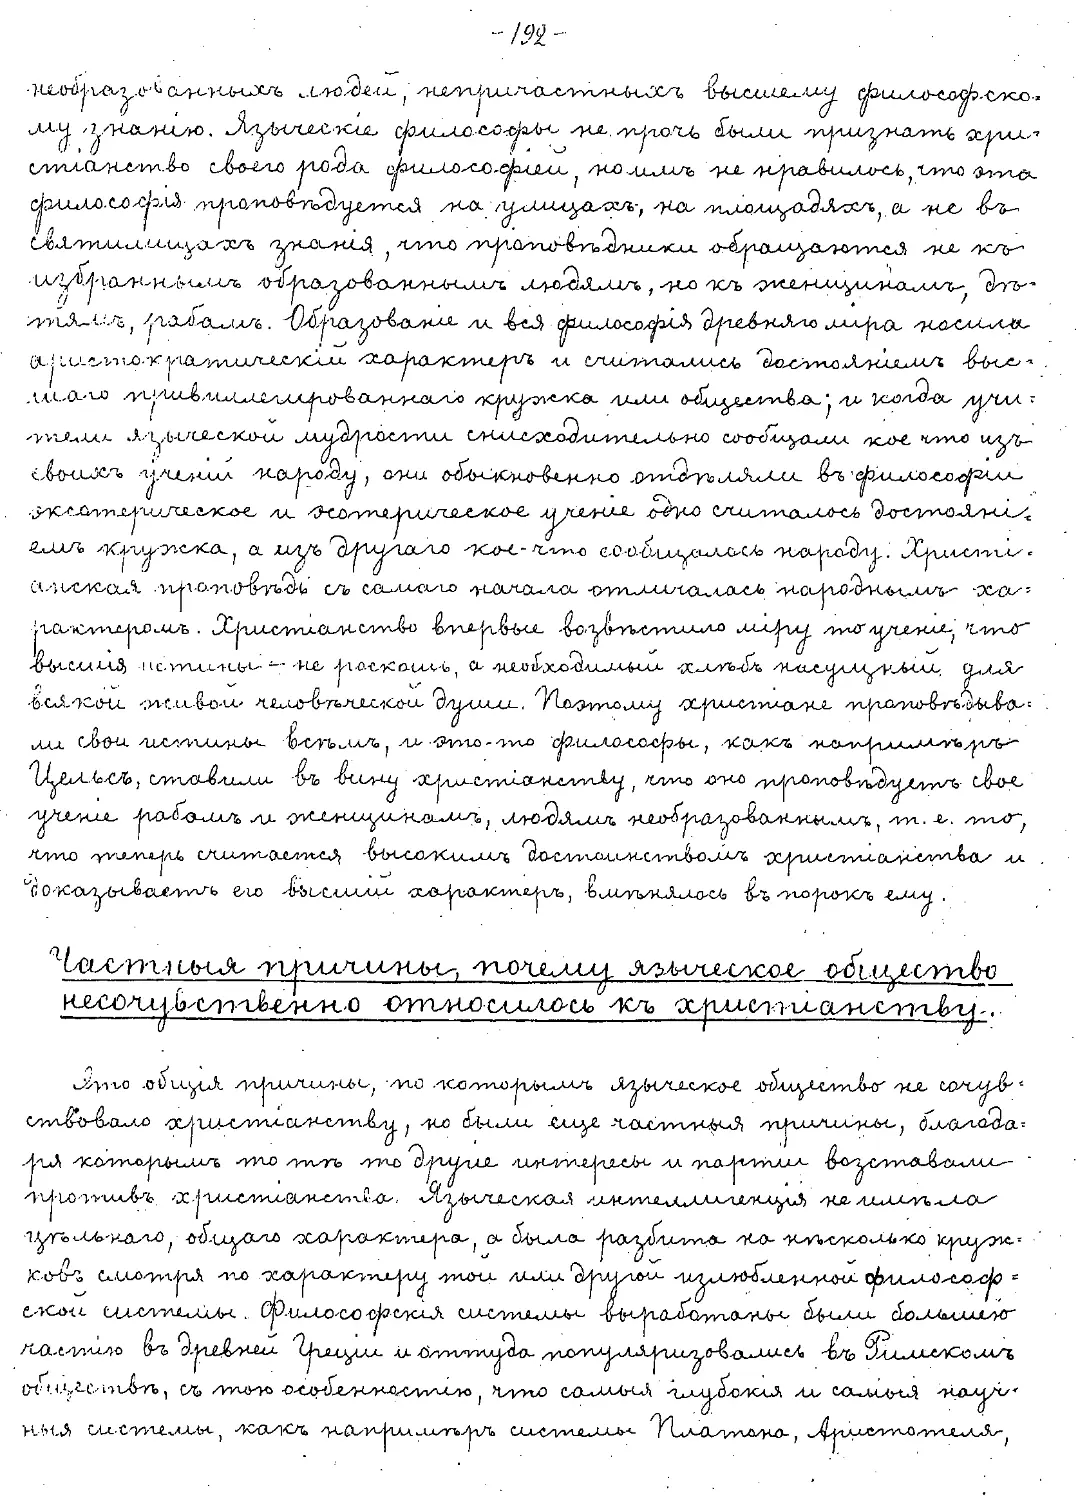 -192-
необразованныхъ людей, непричастныхъ высшему философско-
му знанію. Языческіе философы не прочь были признать хри-
стіанство своего рода философіей, но имъ не нравилось, что эта
философія проповѣдуется на улицахъ, на площадяхъ, а не въ
святилищахъ знанія, что проповѣдники обращаются не къ
избраннымъ образованнымъ людямъ, но къ женщинамъ, дѣ-
тямъ, рабамъ. Образованіе и вся философія древняго міра носила
аристократическій характеръ и считались достояніемъ выс-
шаго привиллегированнаго кружка или общества; и когда учи-
тели языческой мудрости снисходительно сообщали кое что изъ
своихъ ученій народу, они обыкновенно отдѣляли въ философіи
эксотерическое и эсотерическое ученіе одно считалось достояні-
емъ кружка, а изъ другаго кое-что сообщалось народу. Христі-
анская проповѣдь съ самаго начала отличалась народнымъ ха-
рактеромъ. Христіанство впервые возвѣстило міру то ученіе, что
высшія истины - не роскошь, а необходимый хлѣбъ насущный для
всякой живой человѣческой души. Поэтому христіане проповѣдыва-
ли свои истины всѣмъ, и это-то философы, какъ напримѣръ
Цельсъ, ставили въ вину христіанству, что оно проповѣдуетъ свое
ученіе рабамъ и женщинамъ, людямъ необразованнымъ, т. е. то,
что теперь считается высокимъ достоинствомъ христіанства и
доказываетъ его высшій характеръ, вмѣнялось въ порокъ ему.
Частныя причины, почему языческое общество
несочувственно относилось къ христіанству.
Это общія причины, по которымъ языческое общество не сочув-
ствовало христіанству, но были еще частныя причины, благода-
ря которымъ то тѣ то другіе интересы и партіи возставали
противъ христіанства. Языческая интеллигенція не имѣла
цѣльнаго, общаго характера, а была разбита на нѣсколько круж-
ковъ смотря по характеру той или другой излюбленной философ-
ской системы. Философскія системы выработаны были большею
частію въ древней Греціи и оттуда популяризовались въ Римскомъ
обществѣ, съ тою особенностію, что самыя глубокія и самыя науч-
ныя системы, какъ напримѣръ системы Платона, Аристотеля,